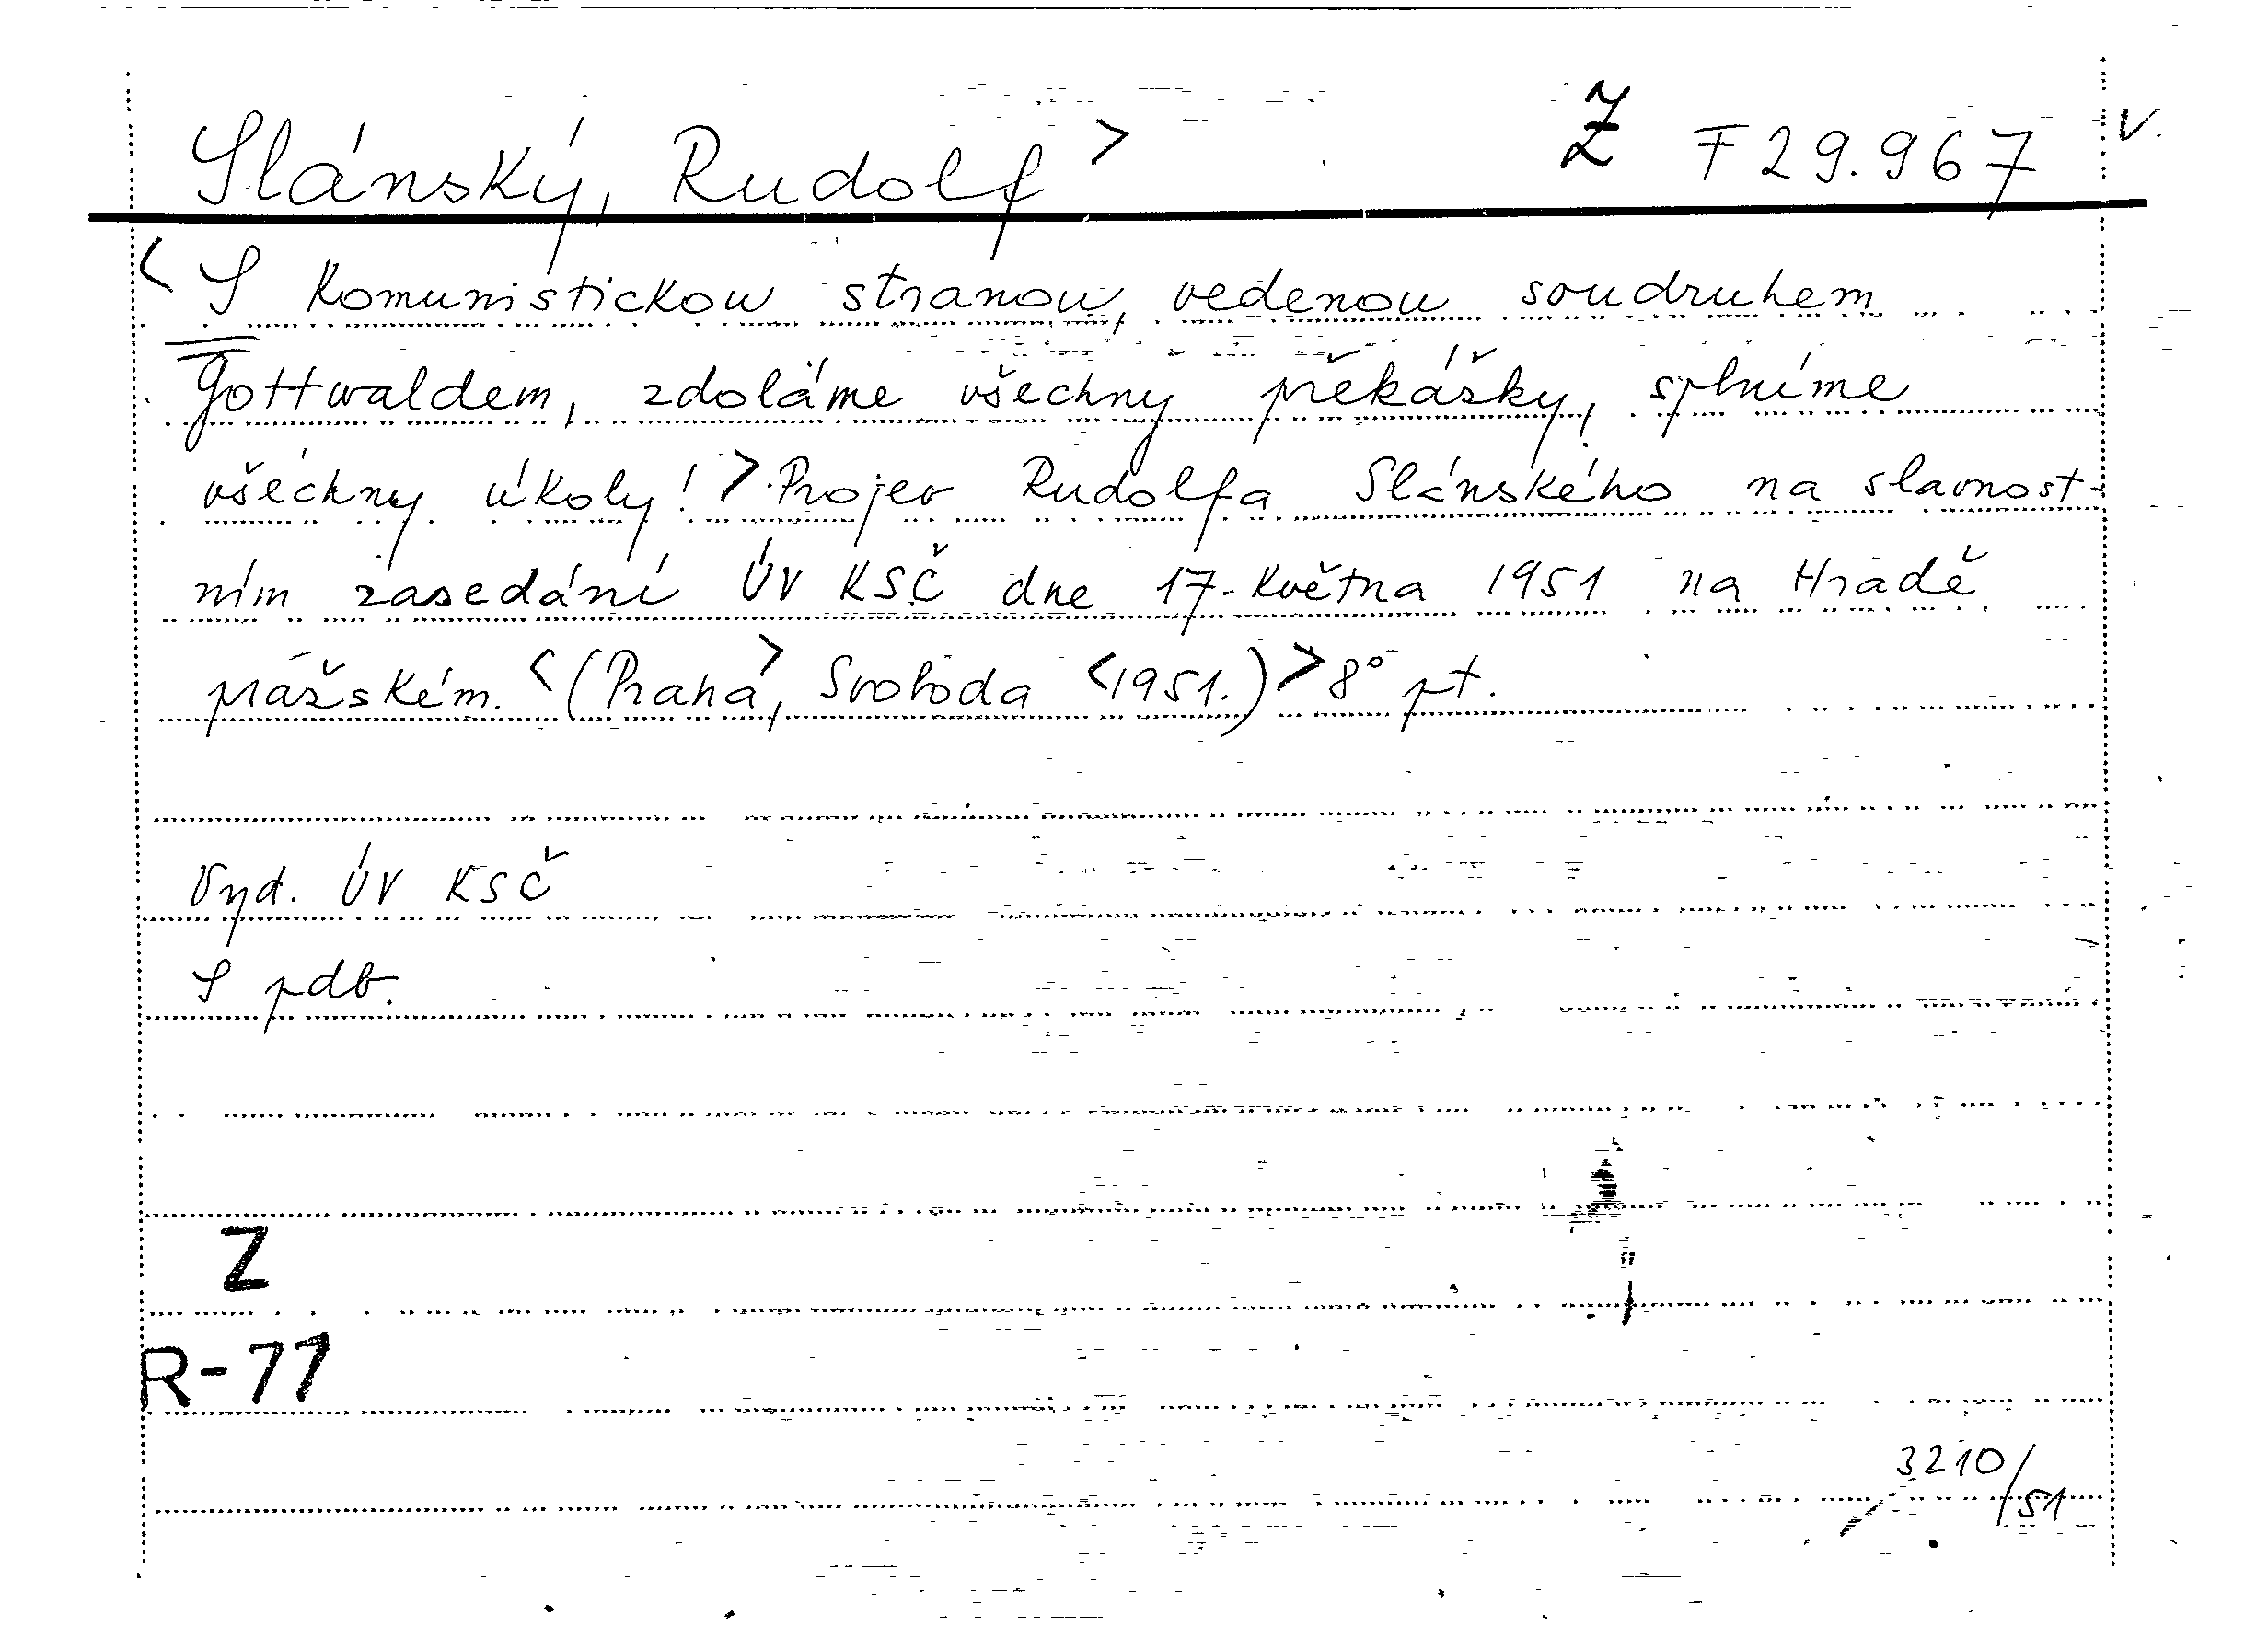 Slánský, Rudolf > Ž F 29.967 v.
< S komunistickou stranou, vedenou soudruhem
Gottwaldem, zdoláme všechny překážky, splníme
všechny úkoly! > Projev Rudolfa Slánského na slavnost-
ním zasedání ÚV KSČ dne 17. května 1951 na Hradě
pražském. < (Praha >, Svoboda < 1951.) > 8° pt.
Vyd. ÚV KSČ
S pdb.
Z
R-77
3210/51